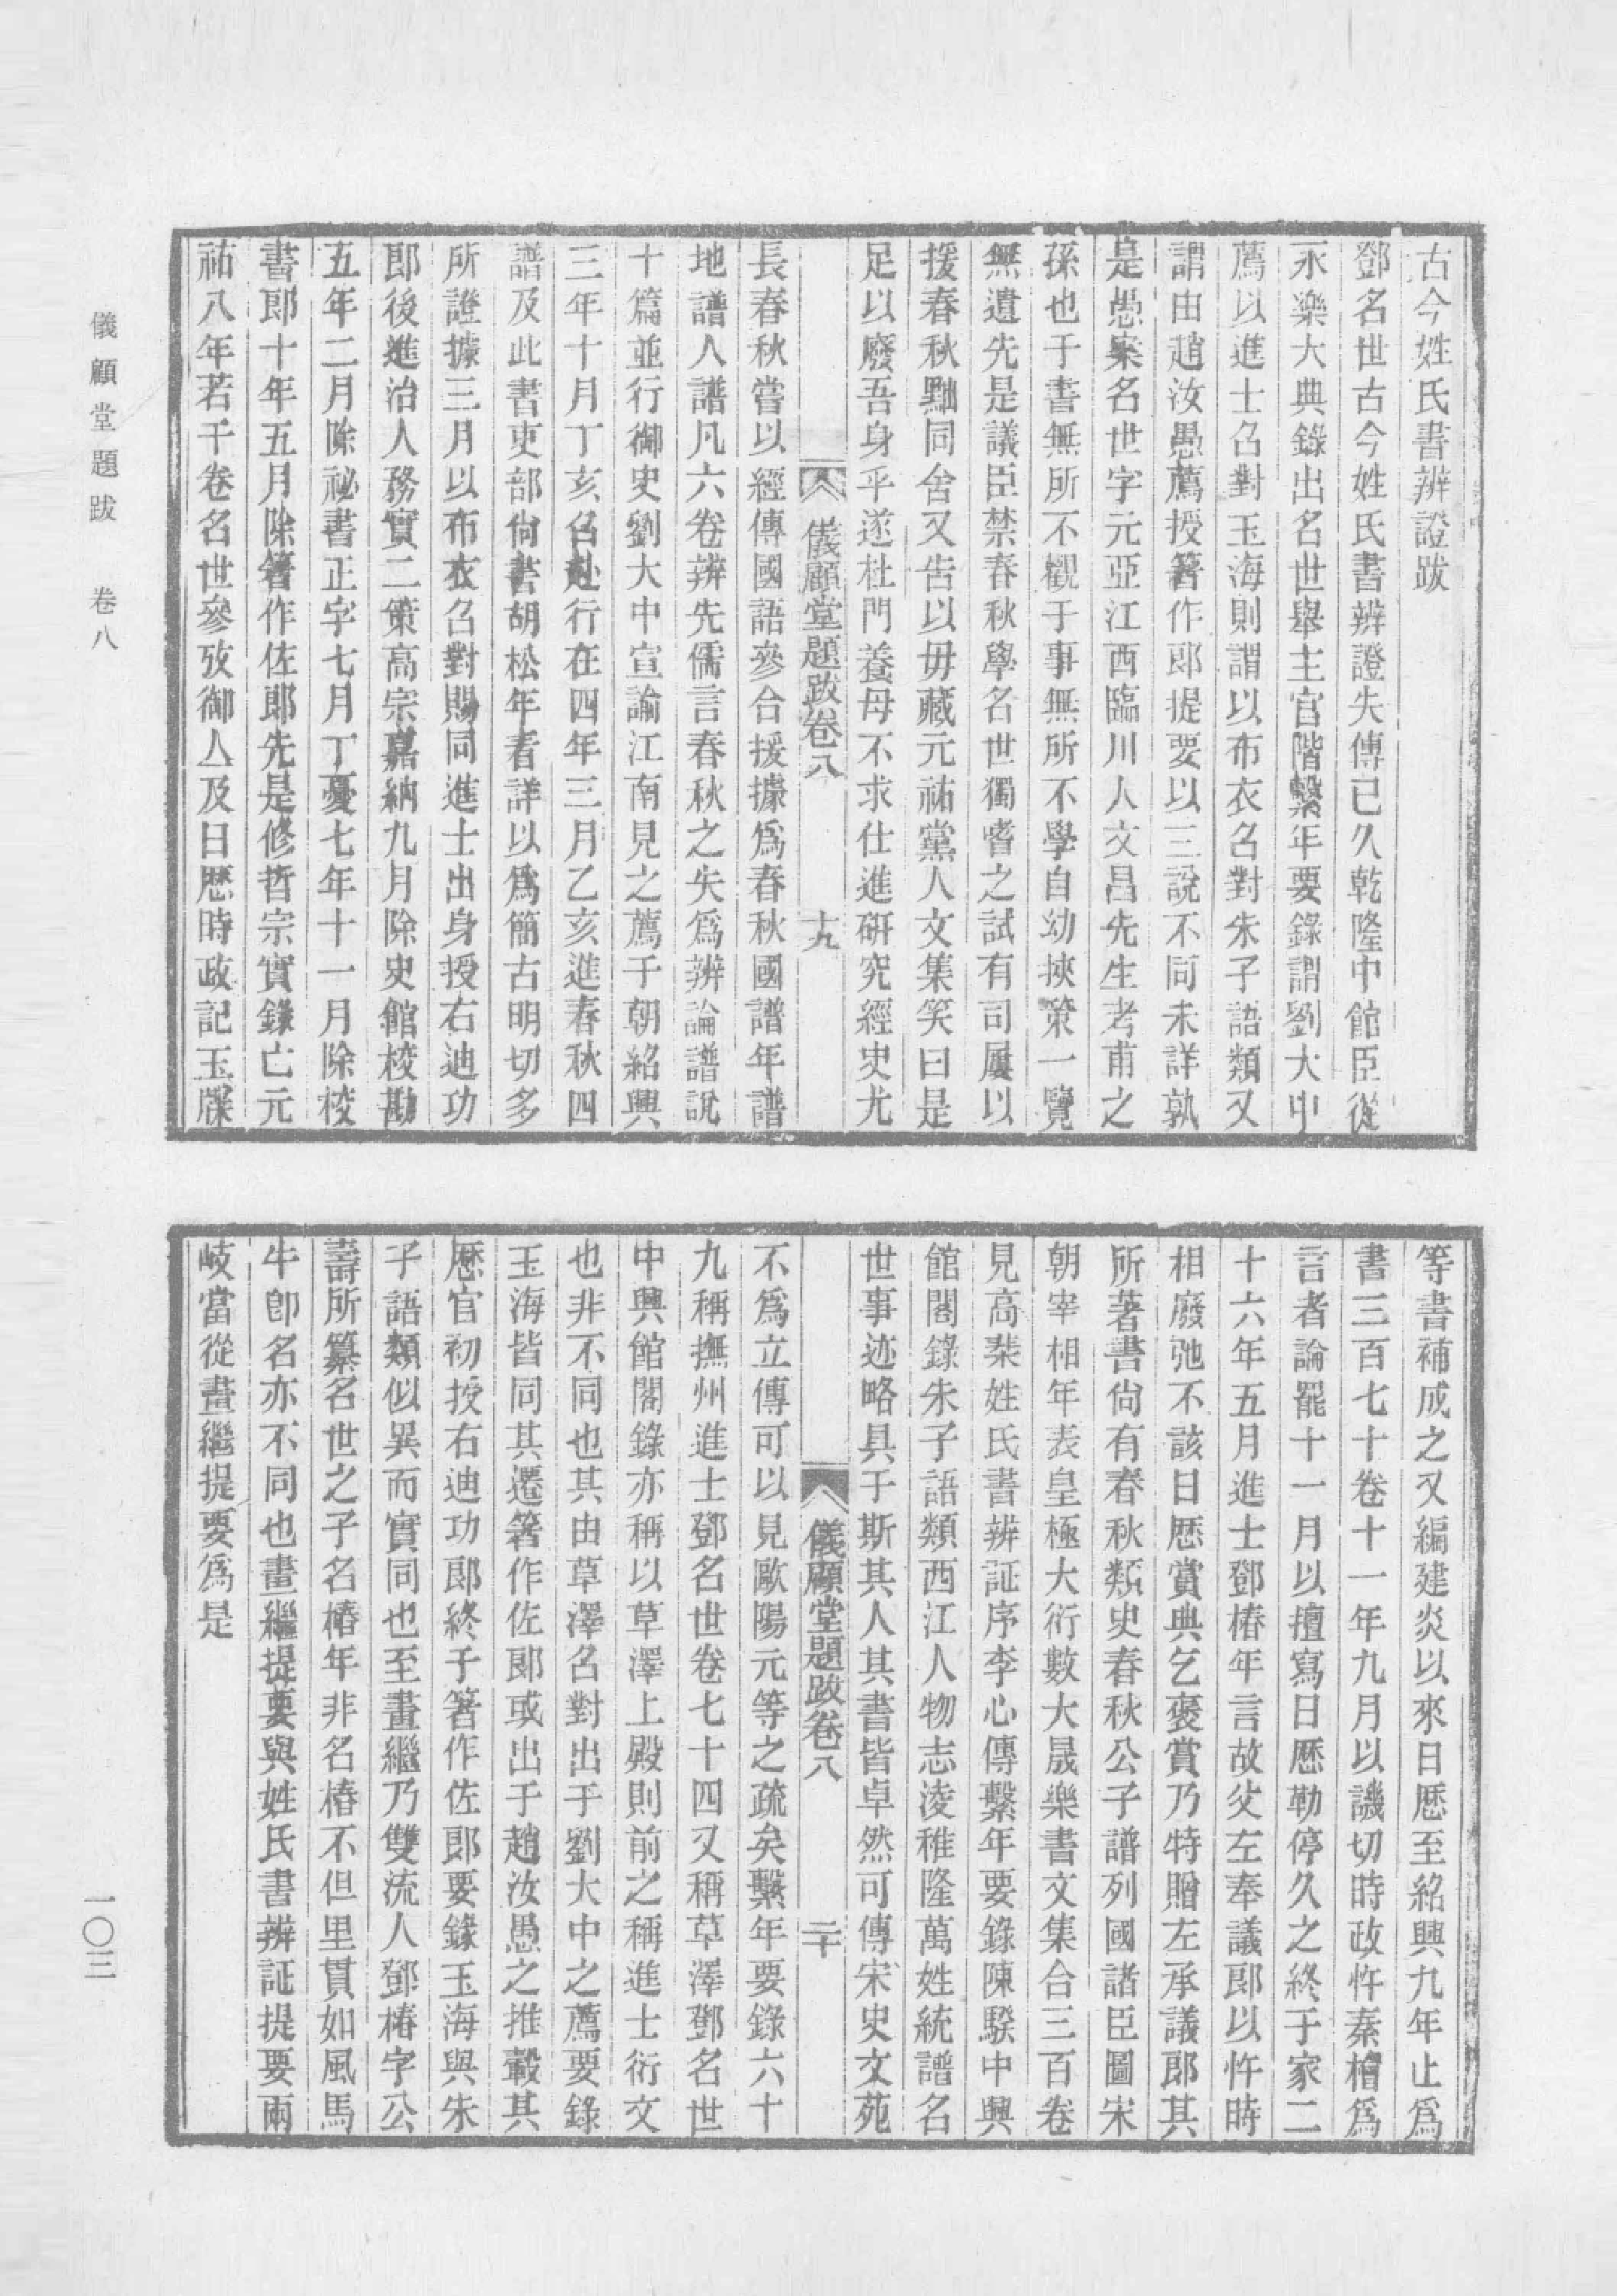 古今姓氏書辨證跋
鄧名世古今姓氏書辨證失傳已久乾隆中館臣從
永樂大典錄出名世舉主官階繫年要錄謂劉大中
薦以進士召對玉海則謂以布衣召對朱子語類又
謂由趙汝愚薦授著作郎提要以三說不同未詳孰
是愚案名世字元亞江西臨川人文昌先生考甫之
孫也于書無所不觀于事無所不學自幼挾策一覽
無遺先是議臣禁春秋學名世獨嗜之試有司屢以
援春秋黜同舍又告以毋藏元祐黨人文集笑曰是
足以廢吾身乎遂杜門養母不求仕進研究經史尤
儀顧堂題跋卷八
十九
長春秋嘗以經傳國語參合援據為春秋國譜年譜
地譜人譜凡六卷辨先儒言春秋之失為辨論譜說
十篇並行御史劉大中宣諭江南見之薦于朝紹興
三年十月丁亥召赴行在四年三月乙亥進春秋四
譜及此書吏部尙書胡松年看詳以為簡古明切多
所證據三月以布衣召對賜同進士出身授右迪功
郎後進治人務實二策高宗嘉納九月除史館校勘
五年二月除祕書正字七月丁憂七年十一月除校
書郎十年五月除著作佐郎先是修哲宗實錄亡元
祐八年若干卷名世參攷御人及日歷時政記玉牒
儀顧堂題跋　卷八
等書補成之又編建炎以來日歷至紹興九年止為
書三百七十卷十一年九月以譏切時政忤秦檜為
言者論罷十一月以擅寫日歷勒停久之終于家二
十六年五月進士鄧椿年言故父左奉議郎以忤時
相廢弛不該日歷賞典乞褒賞乃特贈左承議郎其
所著書尙有春秋類史春秋公子譜列國諸臣圖宋
朝宰相年表皇極大衍數大晟樂書文集合三百卷
見高棻姓氏書辨証序李心傳繫年要錄陳騤中興
館閣錄朱子語類西江人物志淩稚隆萬姓統譜名
世事迹略具于斯其人其書皆卓然可傳宋史文苑
儀顧堂題跋卷八
二十
不為立傳可以見歐陽元等之疏矣繫年要錄六十
九稱撫州進士鄧名世卷七十四又稱草澤鄧名世
中興館閣錄亦稱以草澤上殿則前之稱進士衍文
也非不同也其由草澤召對出于劉大中之薦要錄
玉海皆同其遷著作佐郎或出于趙汝愚之推轂其
歷官初授右迪功郎終于著作佐郎要錄玉海與朱
子語類似異而實同也至畫繼乃雙流人鄧椿字公
壽所纂名世之子名椿年非名椿不但里貫如風馬
牛卽名亦不同也畫繼提要與姓氏書辨証提要兩
岐當從畫繼提要為是
一〇三